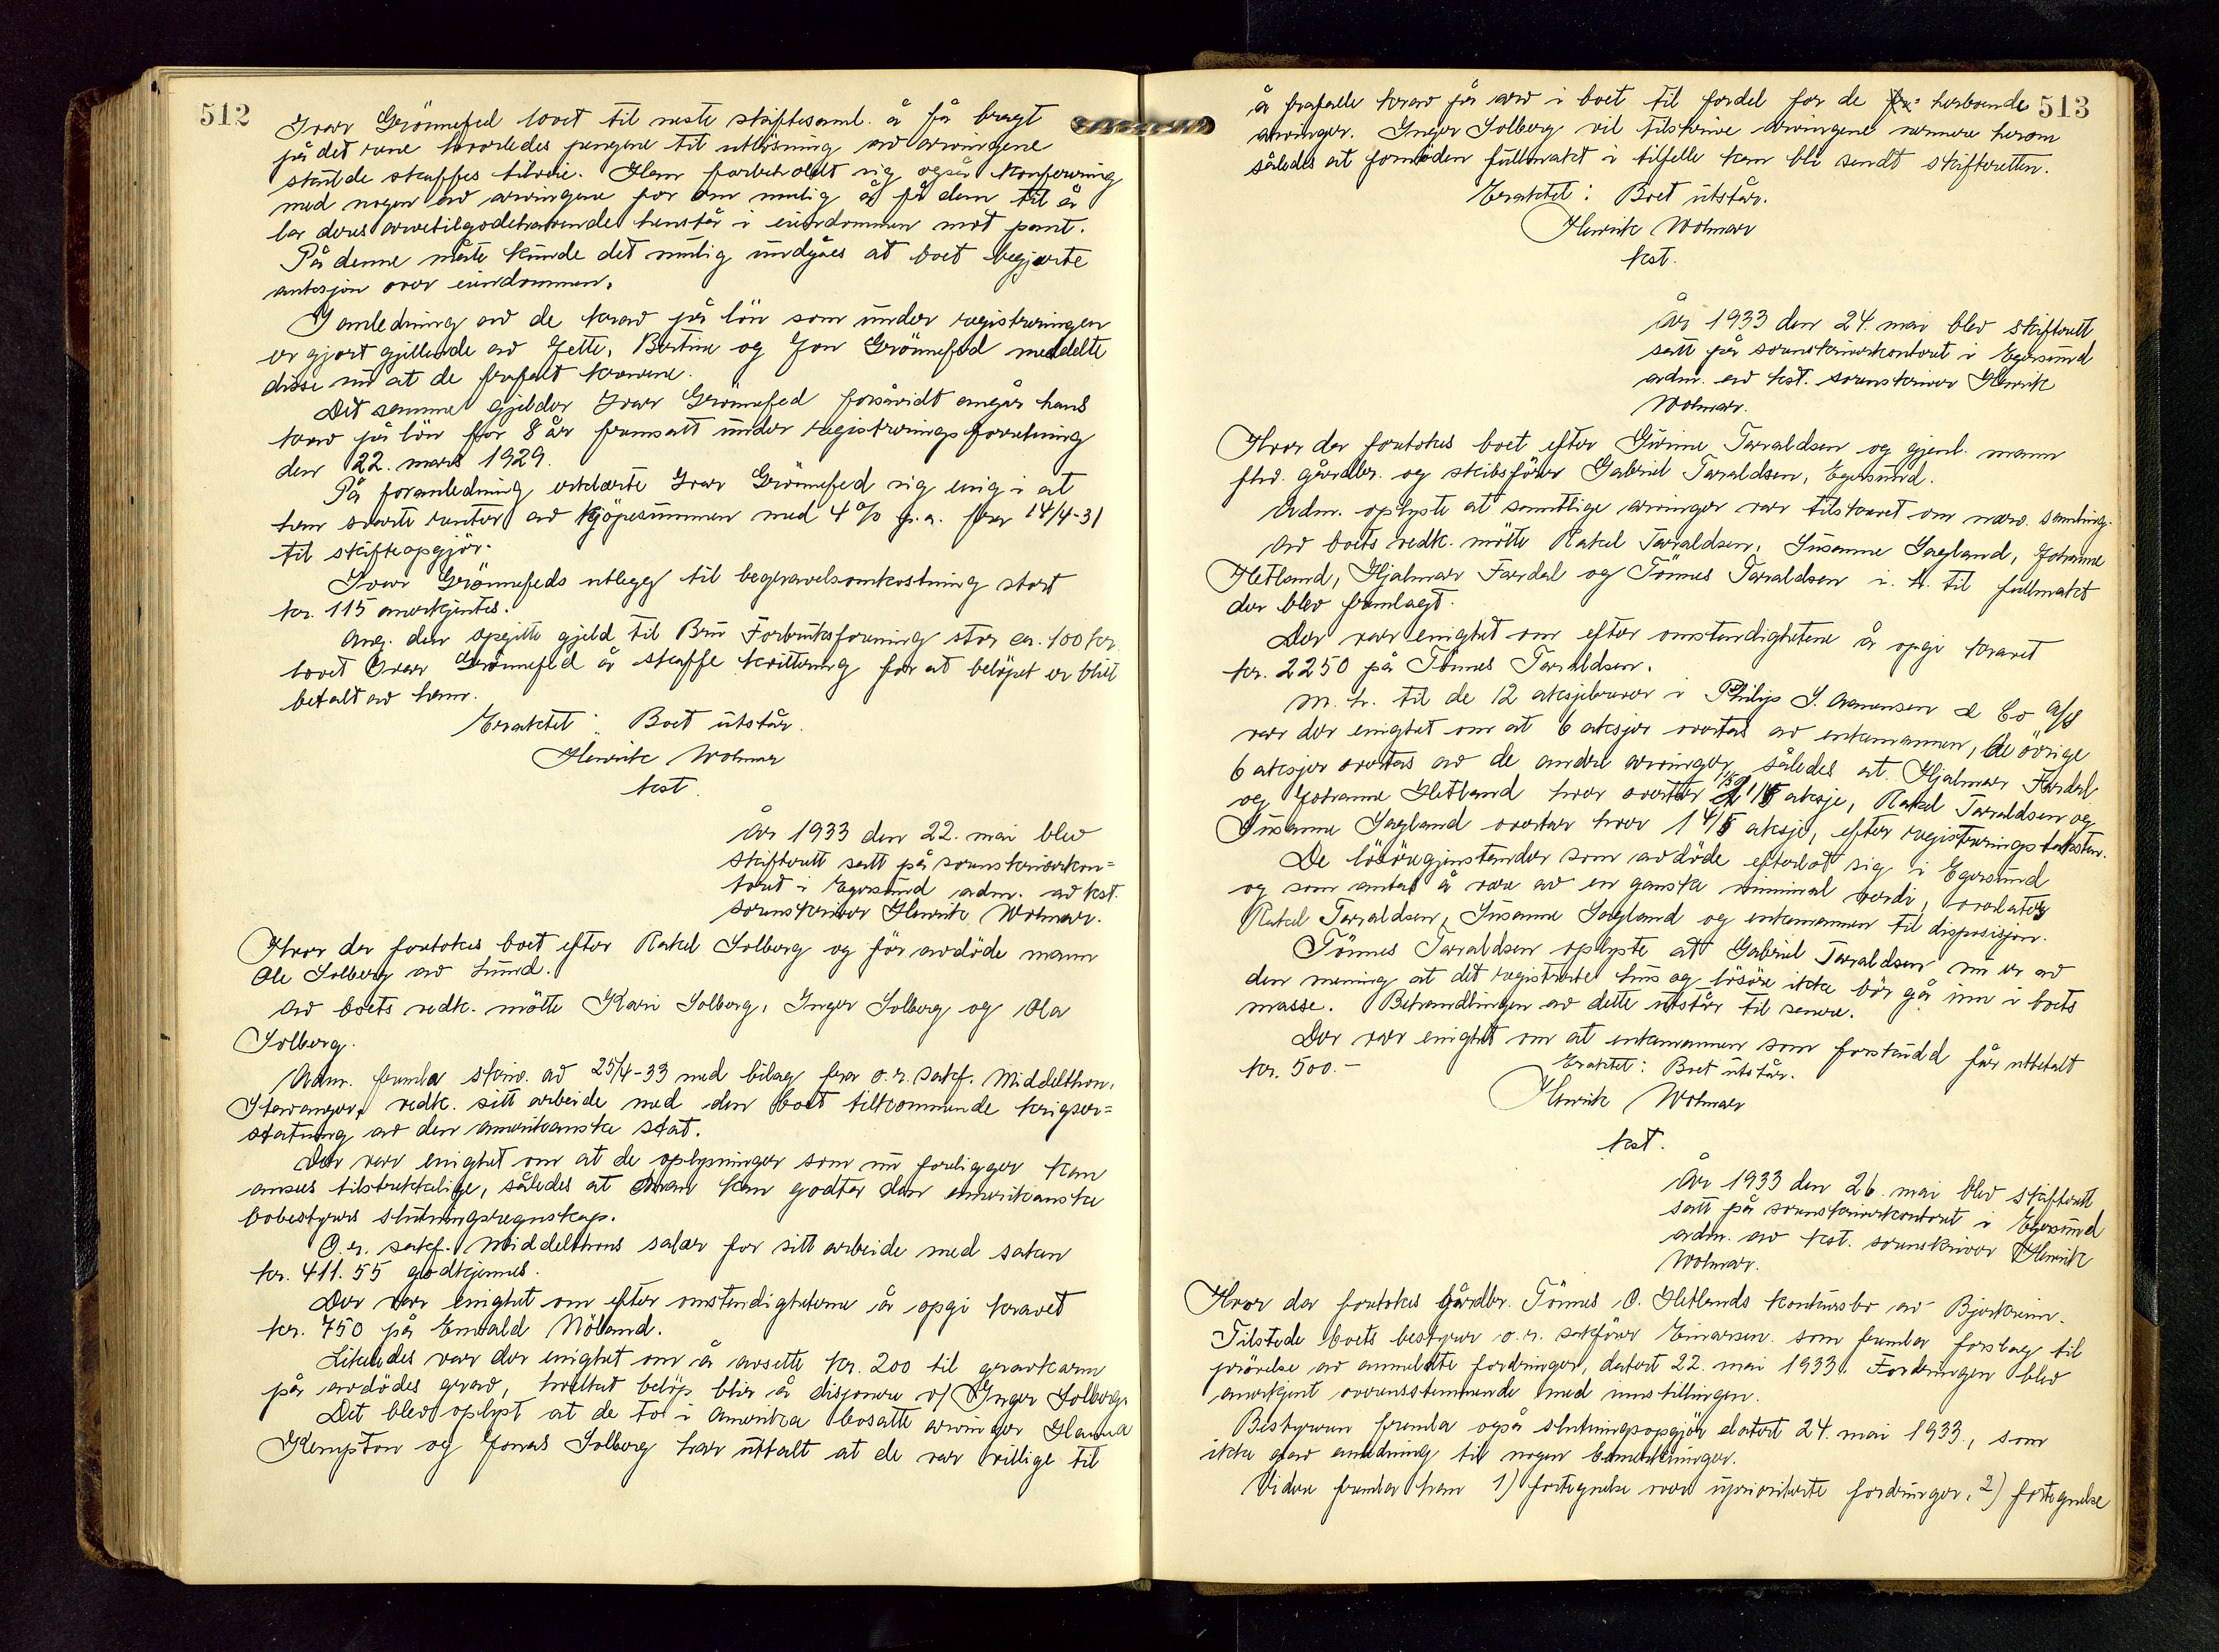 512
Ivar Grönnefed lovet til neste skiftesaml. å få bragt
på det rene hvorledes pengene til utlösning av arvingene
skulde skaffes tilveie. Han forbeholdt sig også konferering
med nogen av arvingene for om mulig å få dem til å
lar deres arvetilgodehavende henstå i eiendommen mot pant.
På denne måte kunde det mulig undgåes at boet begjærte
auksjon over eiendommen.
I anledning av de krav på lön som under registreringen
er gjort gjellende av Jette, Bertine og Jon Grönnefed meddelte
disse nu at de frafalt kravene.
Det samme gjelder Ivar Grönnefed forsåvidt angår hans
krav på lön for 8 år fremsatt under registreringsforretning
den 22. mars 1929.
På foranledning erklærte Ivar Grönnefed sig enig i at
han svarte renter av kjöpesummen med 4% p.a. fra 14/4-31
til skifteopgjör.
Ivar Grönnefeds utlegg til begravelsomkostning stort
kr. 115 anerkjentes.
Ang. den opgitte gjeld til Bru Forbruksforening stor ca. 100 kr.
lovet Ivar Grönnefed å skaffe kvittering for at belöpet er blitt
betalt av ham.
Eraktet: Boet utstår.
Henrik Wolmar
kst.
År 1933 den 22. mai blev
skifterett satt på sorenskriverkon=
toret i Egersund adm. av kst.
sorenskriver Henrik Wolmar.
Hvor der foretokes boet efter Rakel Solberg og för avdöde mann
Ole Solberg av Lund.
Av boets vedk. mötte Kari Solberg, Inger Solberg og Ola
Solberg.
Adm. fremla skriv. av 25/4-33 med bilag fra o.r. sakf. Middelthon,
Stavanger, vedk. sitt arbeide med den boet tilkommende krigser=
statning av den amerikanske stat.
Der var enighet om at de oplysninger som nu foreligger kan
ansees tilstrekkelige, således at man kan godta den amerikanske
bobestyrers slutningsregnskap.
O.r. sakf. Middelthons salær for sitt arbeide med saken
kr. 411.55 godkjennes.
Der var enighet om efter omstendighetene å opgi kravet
kr. 750 på Emvald Nöland.
Likeledes var der enighet om å avsette kr. 200 til gravkarm
på avdödes grav, hvilket belöp blir å disponere v/ Inger Solberg.
Det blev oplyst at de to i Amerika bosatte arvinger
Kempton og Jonas Solberg har uttalt at de var villige til
513
å frafalle krav på arv i boet til fordel for de herboende
arvinger. Inger Solberg vil tilskrive arvingene nærmere herom
således at fornöden fullmakt i tilfelle kan bli sendt skifteretten.
Eraktet: Boet utstår.
Henrik Wolmar
kst.
År 1933 den 24. mai blev skifterett
satt på sorenskriverkontoret i Egersund
adm. av kst. sorenskriver Henrik
Wolmar.
Hvor der foretokes boet efter Gurine Tarraldsen og gjenl. mann
fhv. gårdbr. og skibsförer Gabriel Tarraldsen, Egersund.
Adm. oplyste at samtlige arvinger var tilskrevet om nærv. samling.
Av boets vedk. mötte Rakel Tarraldsen, Susanne Sagland, Johanne
Hetland, Hjalmar Fardal og Tönnes Tarraldsen i. h. til fullmakt
der blev fremlagt.
Der var enighet om efter omstendighetene å opgi kravet
kr. 2250 på Tönnes Tarraldsen.
M. h. til de 12 aksjebrever i Philip S. Aanensen & Co A/S
var der enighet om at 6 aksjer overtas av enkemannen, de övrige
6 aksjer overtas av de andre arvinger således at Hjalmar Fardal
og Johanne Hetland hver overtar aksje, Rakel Tarraldsen og
Susanne Sagland overtar hver 1 4/5 aksje, efter registreringstaksten.
De lösöregjenstander som avdöde efterlot sig i Egersund
og som antas å være av en ganske minimal verdi, overlates
Rakel Tarraldsen, Susanne Sagland og enkemannen til disposisjon.
Tönnes Tarraldsen oplyste at Gabriel Tarraldsen nu er av
den mening at det registrerte hus og lösöre ikke bör gå inn i boets
masse. Behandlingen av dette utstår til senere.
Der var enighet om at enkemannen som forskudd får utbetalt
kr. 500.-
Eraktet: Boet utstår.
Henrik Wolmar
kst.
År 1933 den 26. mai blev skifterett
satt på sorenskriverkontoret i Egersund
adm. av kst. sorenskriver Henrik
Wolmar.
Hvor der foretokes gårdbr. Tönnes O. Hetlands konkursbo av Bjerkreim.
Tilstede boets bestyrer o.r. sakförer Einarsen som fremla forslag til
prövelse av anmeldte fordringer, datert 22. mai 1933. Fordringen blev
anerkjent overensstemmende med innstillingen.
Bestyreren fremla også slutningsopgjör datert 24. mai 1933, som
ikke gav anledning til nogen bemerkninger.
Videre fremla han 1) fortegnelse over uprioriterte fordringer, 2) fortegnelse